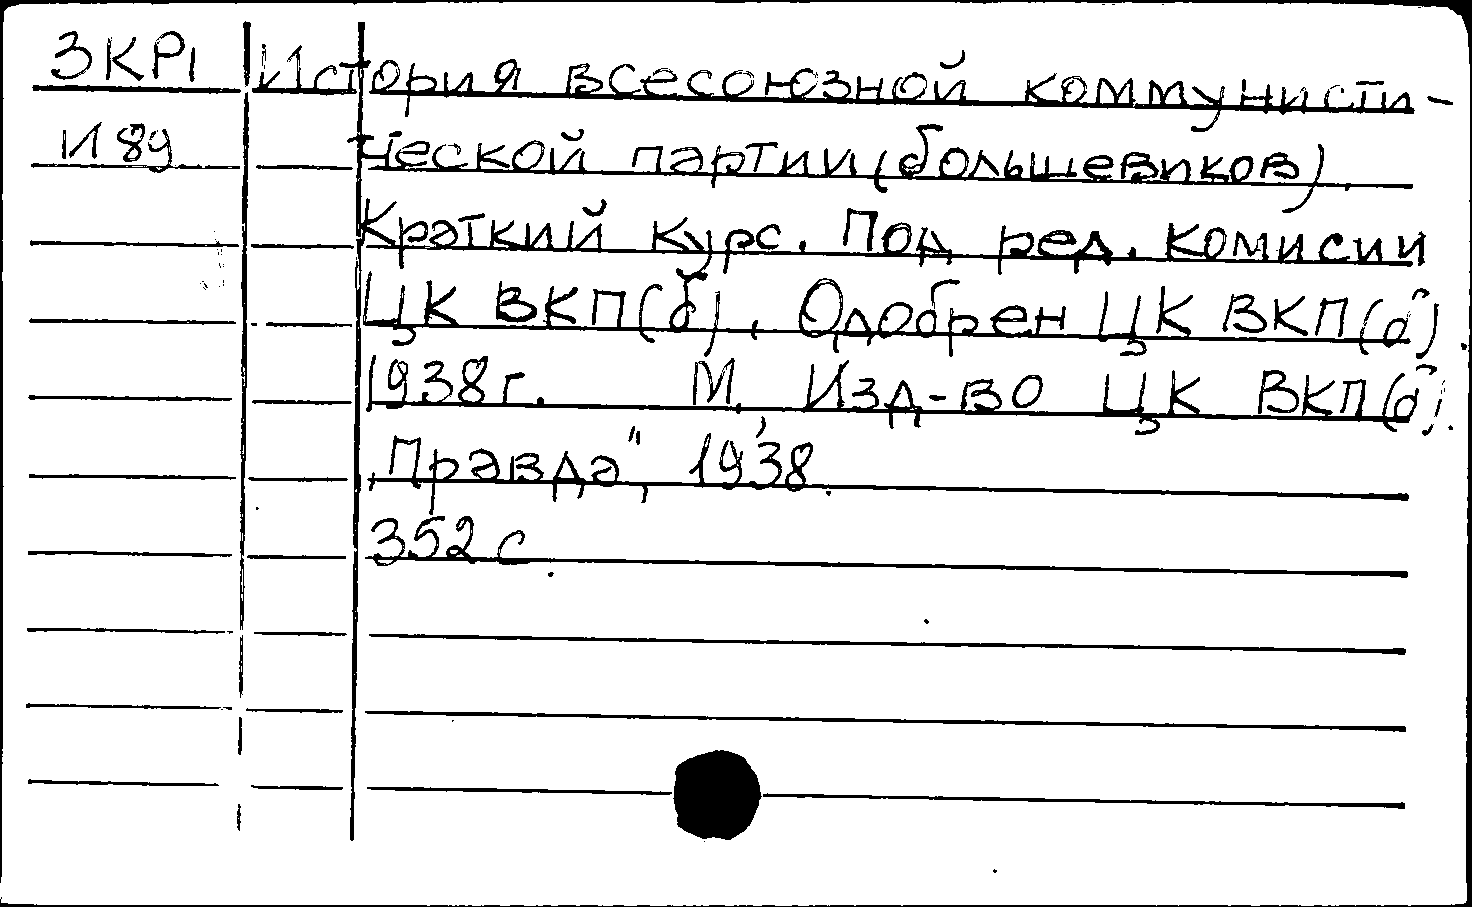 3КР1 История всесоюзной коммунисти-
И89 ческой партии (большевиков).
Краткий курс. Под ред. комисии
ЦК ВКП(б). Одобрен ЦК ВКП(б).
1938г. М., Изд-во ЦК ВКП(б).
"Правда", 1938.
352 с.